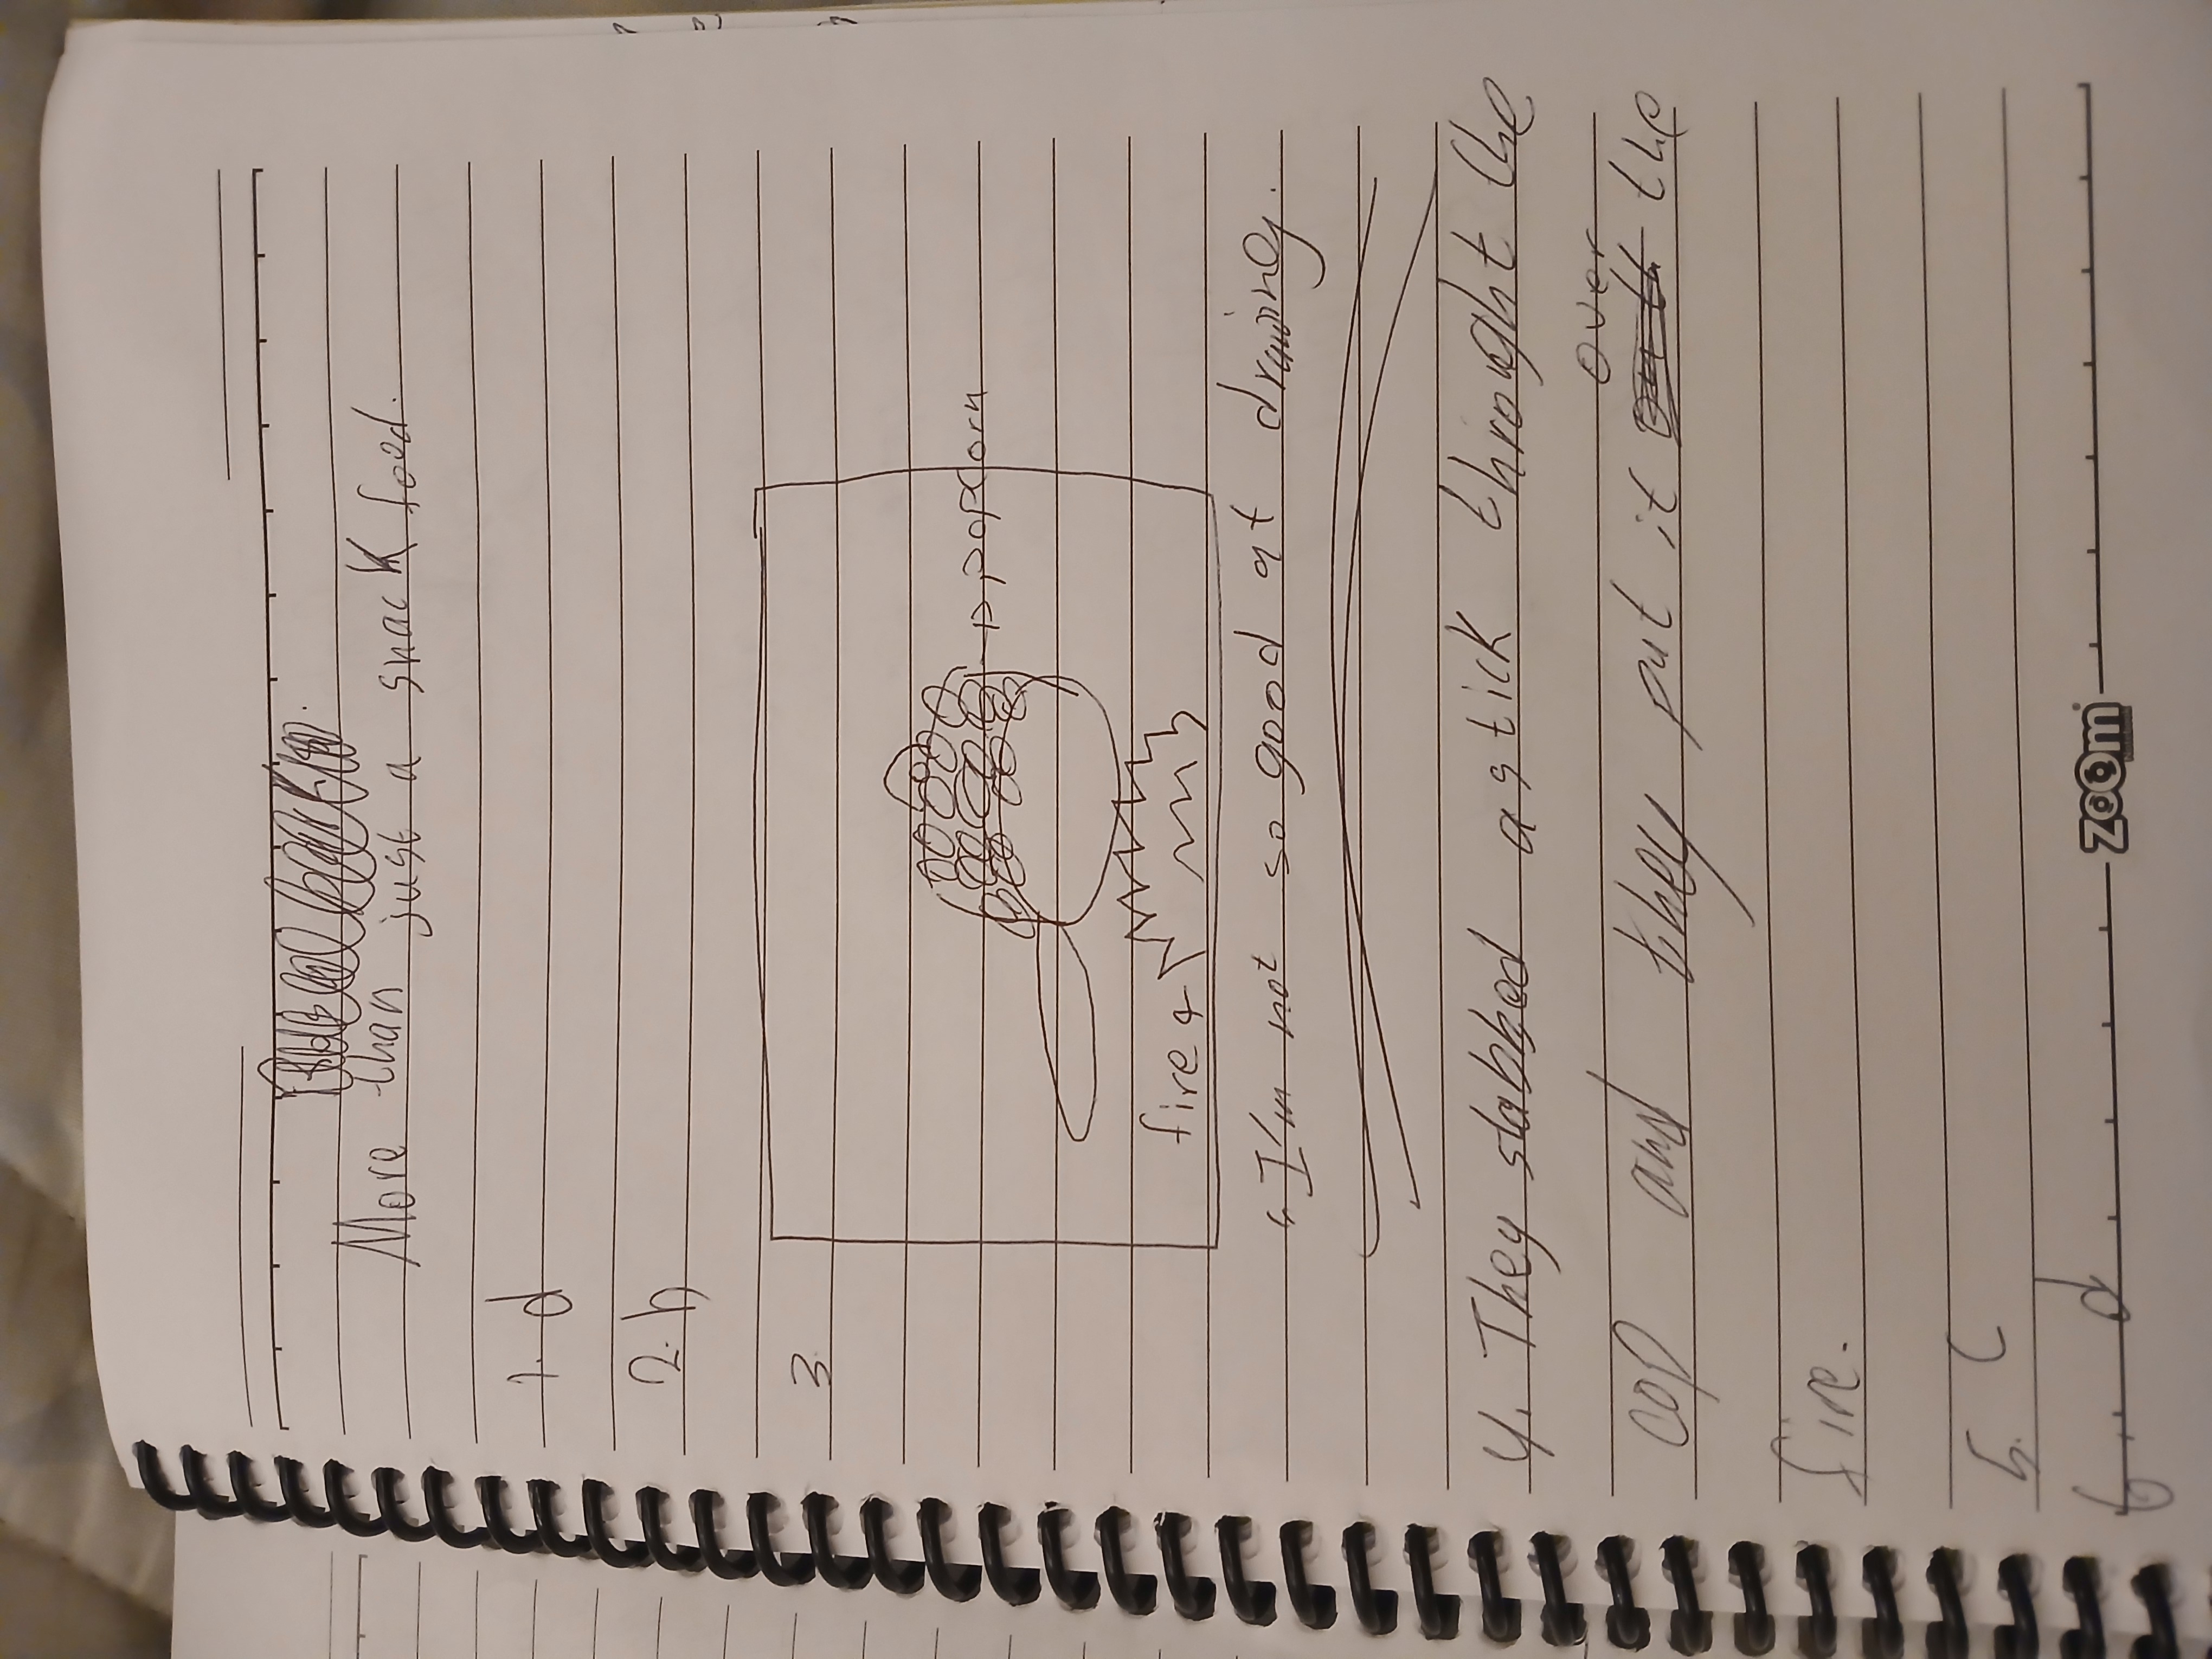 More than just a snack food.
1. d
2. b
3.
popcorn
fire
I'm not so good at drawing.
4. They stabbed a stick throught the
over
cop and they put it the
fire.
5. C
6 d
zoom